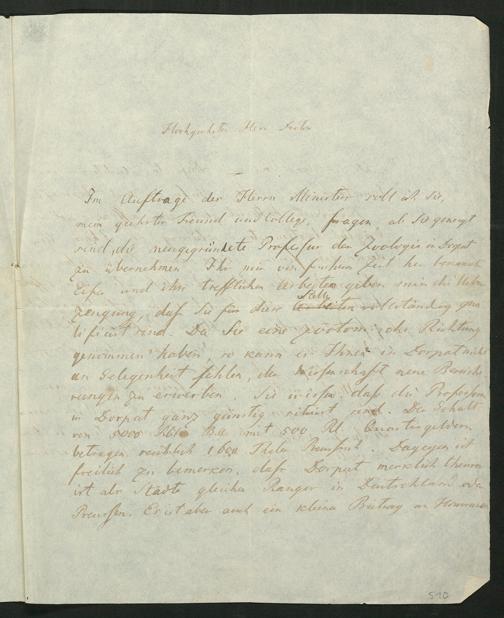 Hochgeehrter Herr
Im Auftrage der Herrn Minister soll ich Sie,
mein geehrter Freund und College, fragen ob Sie geneigt
sind, die neugegründete Professur der Zoologie in Dorpat
zu übernehmen. Ihr mir von früherer Zeit her bekannter
Eifer und Ihre trefflichen Arbeiten geben mir die Ueber-
zeugung, daß Sie für diese Stelle vollständig qua-
lificirt sind. Da Sie eine zootomische Richtung
genommen haben, so kann es Ihnen in Dorpat nicht
an Gelegenheit fehlen, der Wissenschaft neue Bereiche-
rungen zu erwerben. Sie wissen, daß die Professoren
in Dorpat ganz günstig situirt sind. Der Gehalt
von 5000 Rbl. mit 500 Rl. Quartiergeldern
betragen reichlich Thaler Preussisch. Dagegen ist
freilich zu bemerken, daß Dorpat merklich theurer
ist als Städte gleichen Ranges in Deutschland oder
Preussen. Es ist aber auch ein kleiner Beitrag an Honoraren
510